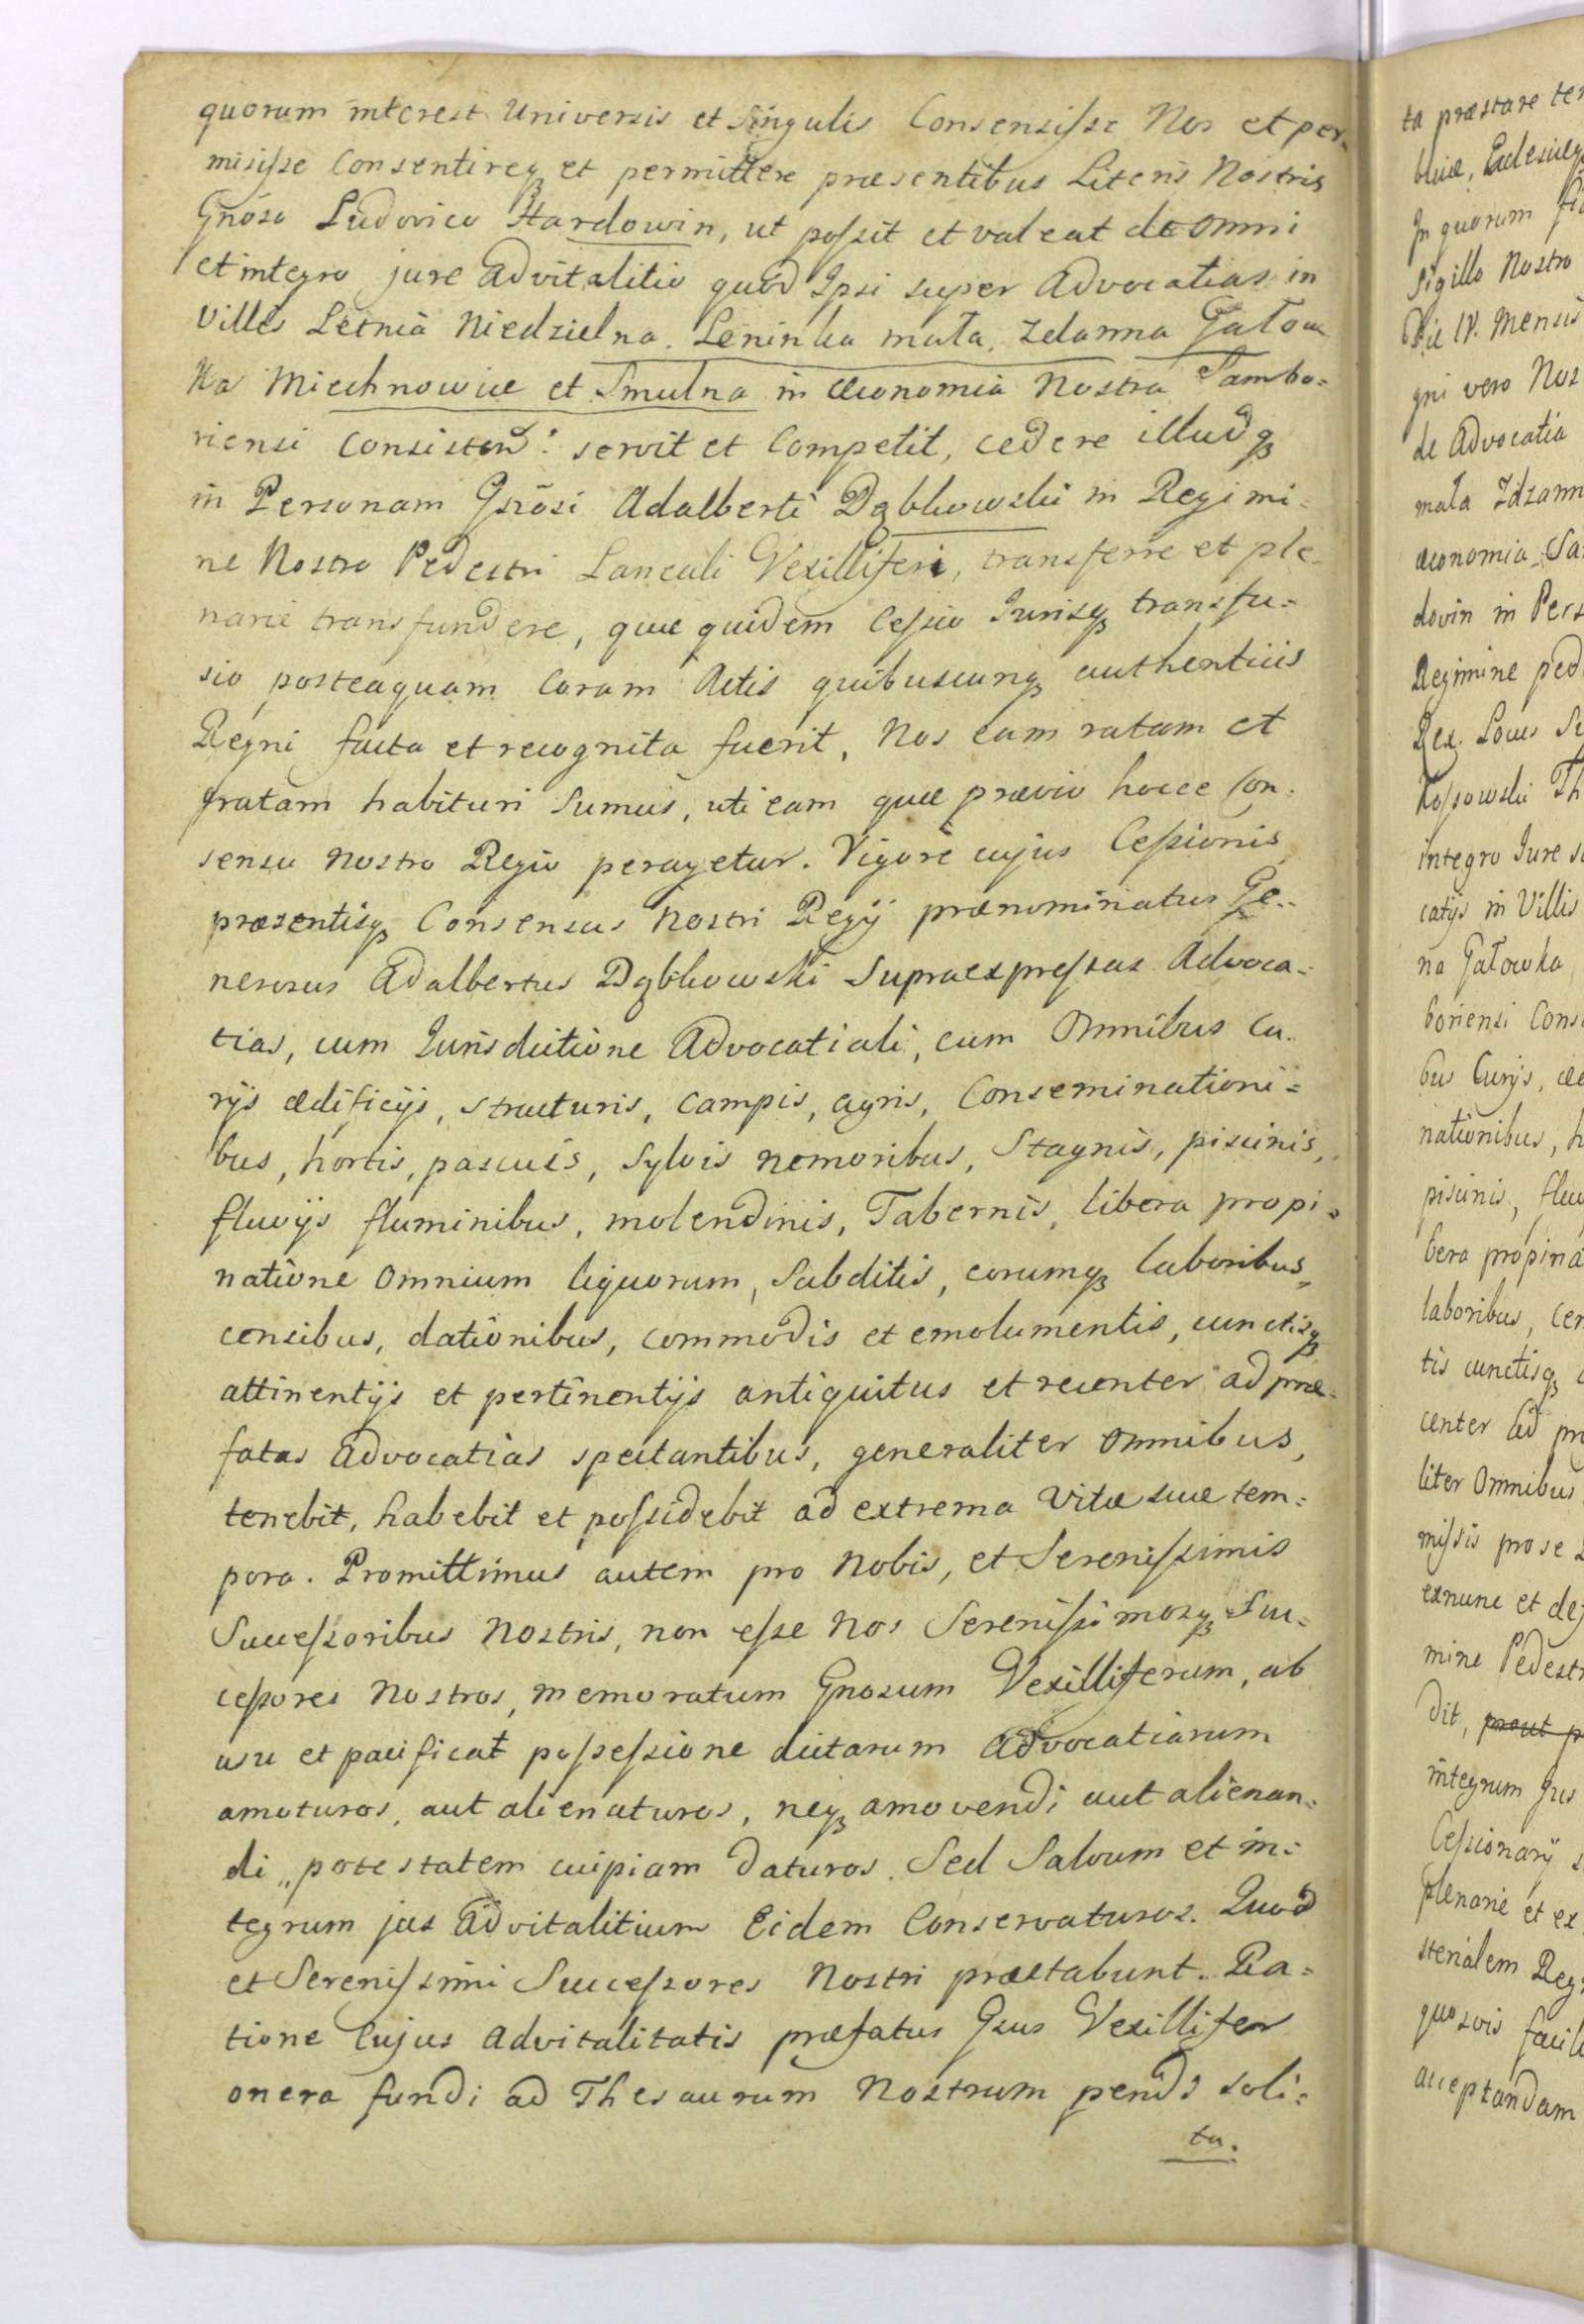 quorum interest Universis et Singulis Consensiſse Nos et per-
misiſse Consentireqꝫ et permittere præsentibus Literis Nostris
Gnoso Ludovico Hardowin, ut poſsit et valeat de omni
et integro jure Advitalitio quod Ipsi super Advocatias in
Villis Letnia Niedzielna, Leninka mała, Zdanna Gałow
ka Miechnowice et Smulna in Œconomia Nostra Sambo=
riensi consisten: servit et Competit, cedere illudqꝫ
in Personam Gnosi Adalberti Dąbkowski in Regimi-
ne Nostro Pedestri Laneali Vexilliferi, transferre et ple-
narie transfundere, quæ quidem Ceſsio Jurisqꝫ transfu=
sio posteaquam Coram Actis quibuscunqꝫ authenticis
Regni facta et recognita fuerit, Nos eam ratam et
gratam habituri Sumus, uti eam quæ prævio hocce Con-
sensu Nostro Regio peragetur. Vigore cujus Ceſsionis
præsentisqꝫ Consensus Nostri Regij prænominatus Ge-
nerosus Adalbertus Dąbkowski Supraexpreſsas Advoca-
tias, cum Jurisdictione Advocatiali, cum Omnibus Cu-
rijs ædificijs, structuris, campis, agris, Conseminationi=
bus, hortis, pascuis, Sylvis nemoribus, Stagnis, piscinis,
fluvijs fluminibus, molendinis, Tabernis, libera propi=
natione Omnium liquorum, Subditis, eorumqꝫ laboribus,
censibus, dationibus, commodis et emolumentis, cunctisqꝫ
attinentijs et pertinentijs antiquitus et recenter ad præ-
fatas Advocatias spectantibus, generaliter Omnibus,
tenebit, habebit et poſsidebit ad extrema vitæ suæ tem=
pora. Promittimus autem pro Nobis, et Sereniſsimis
Succeſsoribus Nostris, non eſse Nos Sereniſsimosqꝫ Suc=
ceſsores Nostros, memoratum Gnosum Vexilliferum, ab
usu et pacificat poſseſsione dictarum Advocatiarum
amoturos, aut alienaturos, neqꝫ amovendi aut alienan=
di „ potestatem cuipiam daturos. Sed Salvum et in=
tegrum jus Advitalitium Eidem Conservaturos. Quod
et Sereniſsimi Succeſsores Nostri præstabunt. Ra=
tione Cujus Advitalitatis præfatus Gsus Vexillifer
onera fundi ad Thesaurum Nostrum pendi soli=
ta.
ta præstare
In quorum
Sigillo Nostro
Die IV. Mensis
gni vero Nos
de Advocatia
mała Zdzann
œconomia
dovin in Pers
Regimine ped
Rex. Locus
Koſsowski Th
integro Jure
catijs in Villis
na Gałowka
boriensi Cons
bus Curijs, æ
nationibus, h
piscinis, fluv
bera propina
laboribus, cen
tis cunctisqꝫ
center ad pr
liter Omnibus
miſsis pro se
exnunc et de
mine Pedestr
dit, prout p
integrum Jus
Ceſsionarij
plenarie et ex
sterialem Reg
quosvis facile
acceptandam